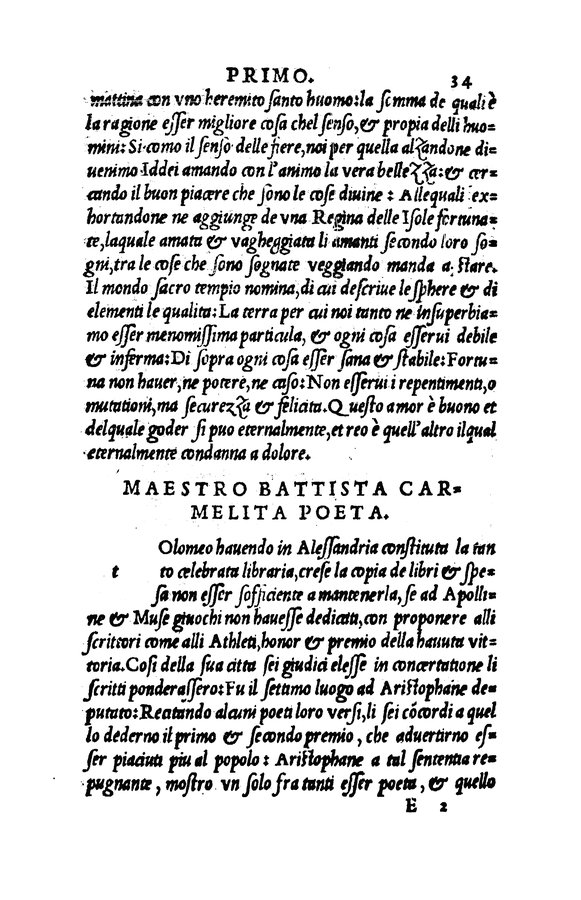 PRIMO. 34
mattina con vno heremito ſanto huomo:la ſomma de quali è
la ragione eſſer migliore coſa chel ſenſo,& propia delli huo=
mini: Si como il ſenſo delle fiere,noi per quella alzandone di=
uenimo Iddei amando con l'animo la vera bellezza:& cer=
cando il buon piacere che ſono le coſe diuine : Allequali ex=
hortandone ne aggiunge de vna Regina delle Iſole fortuna=
te,laquale amata & vagheggiata li amanti ſecondo loro ſo=
gni,tra le coſe che ſono ſognate veggiando manda a ſtare.
Il mondo ſacro tempio nomina,di cui deſcriue le ſphere & di
elementi le qualita:La terra per cui noi tanto ne inſuperbia=
mo eſſer menomiſſima particula, & ogni coſa eſſerui debile
& inferma:Di ſopra ogni coſa eſſer ſana & ſtabile:Fortu=
na non hauer,ne potere,ne caſo:Non eſſerui i repentimenti,o
mutationi,ma ſecurezza & felicita.Queſto amor è buono et
delquale goder ſi puo eternalmente,et reo è quell'altro ilqual
eternalmente condanna a dolore.
MAESTRO BATTISTA CAR=
MELITA POETA.
Olomeo hauendo in Aleſſandria conſtituta la tan
t to celebrata libraria,creſe la copia de libri & ſpe=
ſa non eſſer ſofficiente a mantenerla,ſe ad Apolli=
ne & Muſe giuochi non haueſſe dedicati,con proponere alli
ſcrittori come alli Athleti,honor & premio della hauuta vit=
toria.Coſi della ſua citta ſei giudici eleſſe in concertatione li
ſcritti ponderaſſero:Fu il ſettimo luogo ad Ariſtophane de=
putato:Recitando alcuni poeti loro verſi,li ſei cõcordi a quel
lo dederno il primo & ſecondo premio, che aduertirno eſ=
ſer piaciuti piu al popolo : Ariſtophane a tal ſententia re=
pugnante, moſtro vn ſolo fra tanti eſſer poeta, & quello
E 2